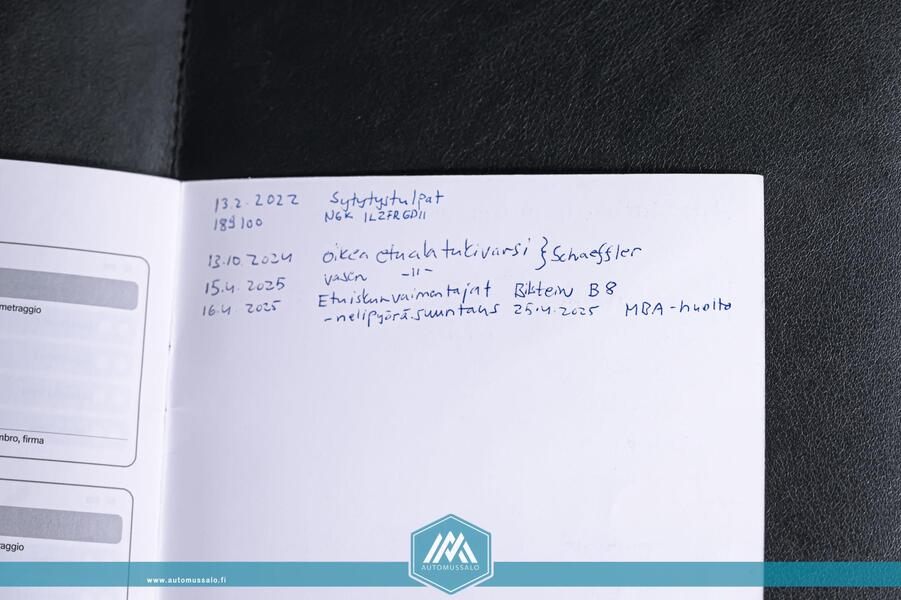 13.2.2022 Sytytystulpat
189100 NGK ILZFR6D11
13.10.2024 oikea etualatukivarsi } Schaeffler
15.4.2025 vasen -11-
16.4.2025 Etuiskunvaimentajat Bilstein B8
-nelipyöräsuuntaus 25.4.2025 MBA-huolto
metraggio
mbro, firma
raggio
AUTOMUSSALO
www.automussalo.fi